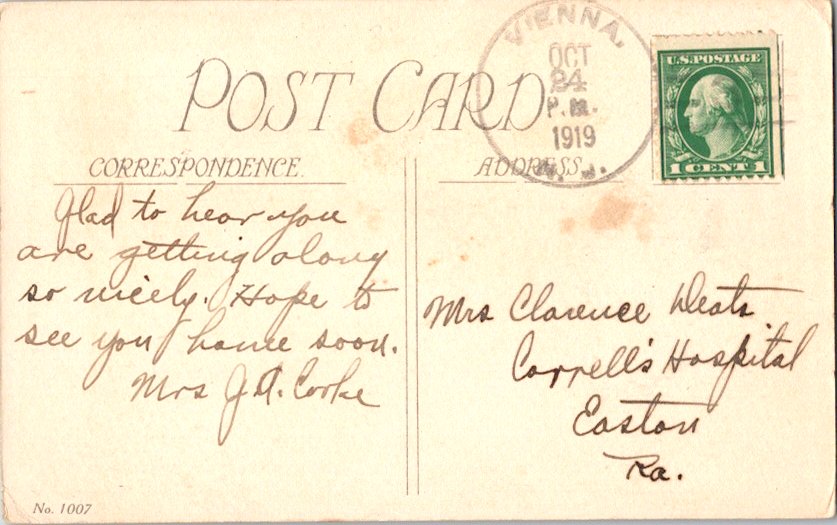 VIENNA,
OCT
24
P.M.
1919
N. J.
U.S. POSTAGE
1 CENT 1
POST CARD
CORRESPONDENCE.
ADDRESS
Glad to hear you
are getting along
so nicely. Hope to
see you home soon.
Mrs J. A. Cooke
Mrs Clarence Deats
Correll's Hospital
Easton
Pa.
No. 1007